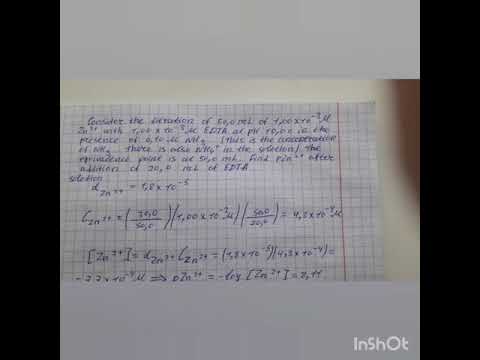 Consider the titration of 50,0 mL of 1,00 x 10⁻³ M
Zn²⁺ with 1,00 x 10⁻³ M EDTA at pH 10,00 in the
presence of 0,10 M NH₃. (This is the concentration
of NH₃. There is also NH₄⁺ in the solution) The
equivalence point is at 50,0 mL. Find pZn²⁺ after
addition of 20,0 mL of EDTA
solution
α Zn²⁺ = 1,8 x 10⁻⁵
C Zn²⁺ = (30,0/50,0)(1,00 x 10⁻³ M)(50,0/70,0) = 4,3 x 10⁻⁴ M
[Zn²⁺] = α Zn²⁺ C Zn²⁺ = (1,8 x 10⁻⁵)(4,3 x 10⁻⁴) =
M ⟹ pZn²⁺ = -log [Zn²⁺] = 8,11
InShOt